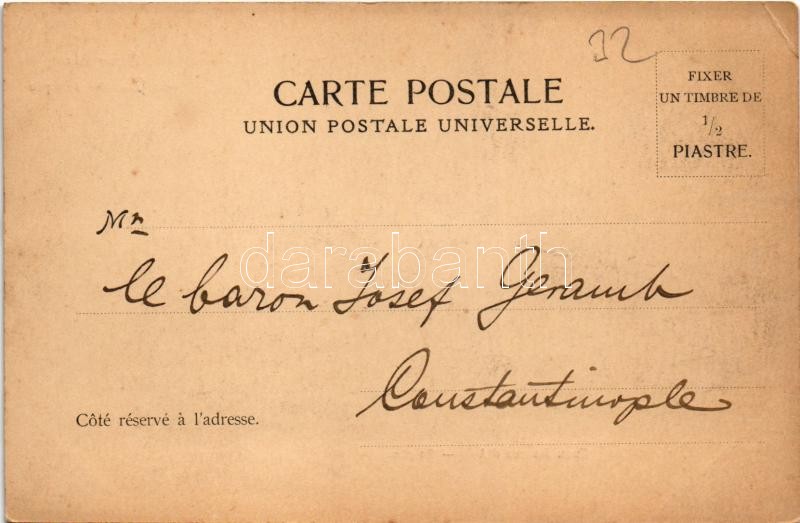 32
CARTE POSTALE
UNION POSTALE UNIVERSELLE.
FIXER
UN TIMBRE DE
1/2
PIASTRE.
Mr
le baron Josef Geramb
darabanth
Constantinople
Côté réservé à l'adresse.